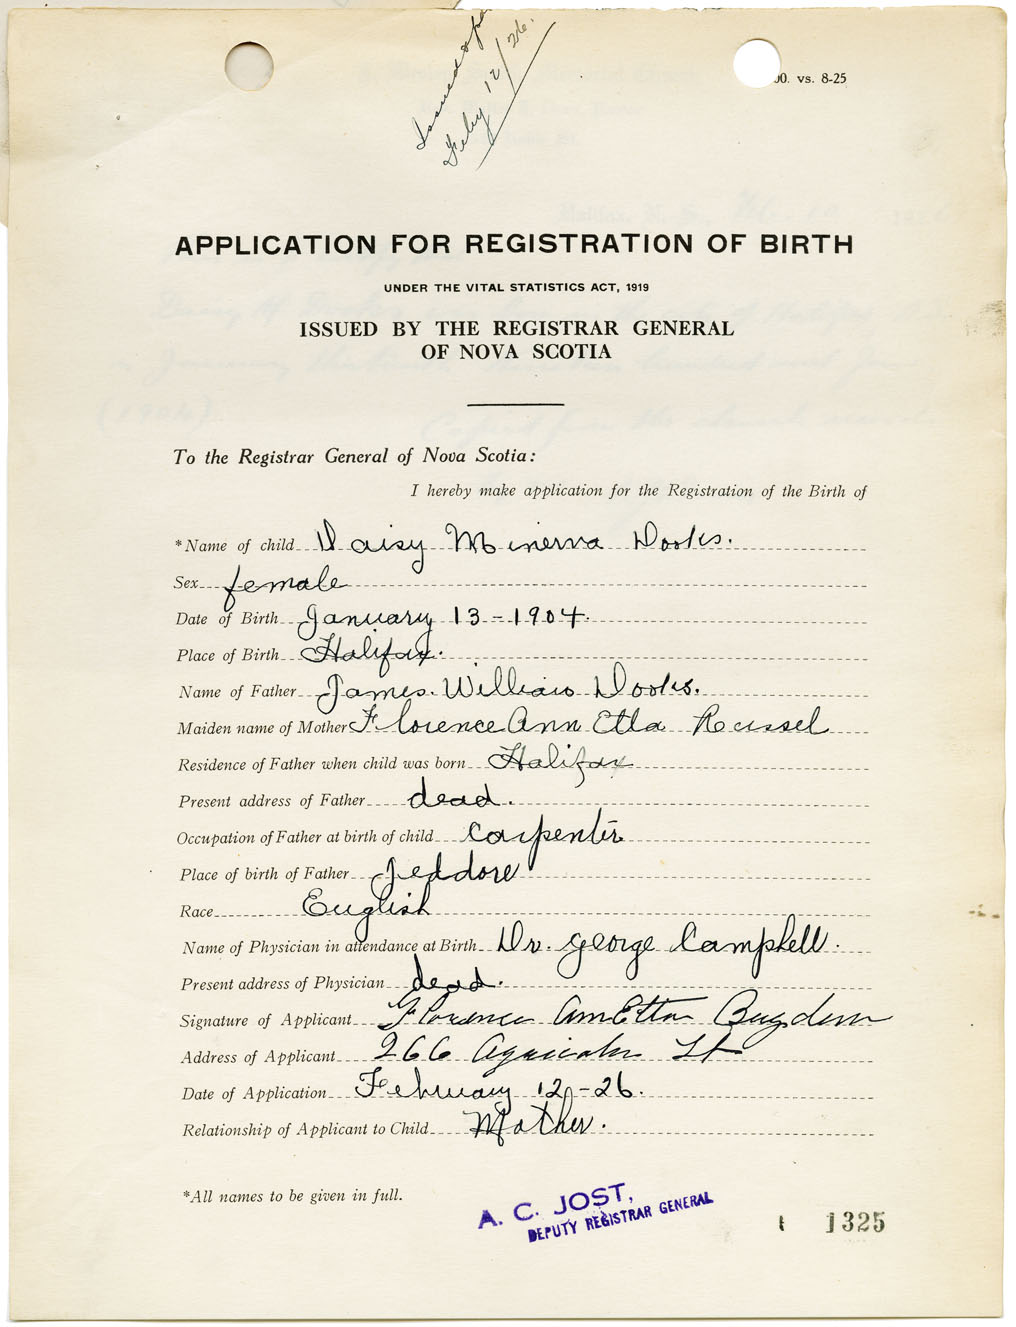 Issued
Feby 12/26.
00. vs. 8-25
APPLICATION FOR REGISTRATION OF BIRTH
UNDER THE VITAL STATISTICS ACT, 1919
ISSUED BY THE REGISTRAR GENERAL
OF NOVA SCOTIA
To the Registrar General of Nova Scotia:
I hereby make application for the Registration of the Birth of
*Name of child Daisy Minerva Dooks.
Sex female
Date of Birth January 13-1904.
Place of Birth Halifax.
Name of Father James. William Dooks.
Maiden name of Mother Florence Ann Etta Russel
Residence of Father when child was born Halifax
Present address of Father dead.
Occupation of Father at birth of child Carpenter
Place of birth of Father Jeddore
Race English
Name of Physician in attendance at Birth Dr. George Campbell.
Present address of Physician dead.
Signature of Applicant Florence Ann Etta Bugden
Address of Applicant 266 Agricola St
Date of Application February 12-26.
Relationship of Applicant to Child Mother.
*All names to be given in full.
A. C. JOST,
DEPUTY REGISTRAR GENERAL
1325